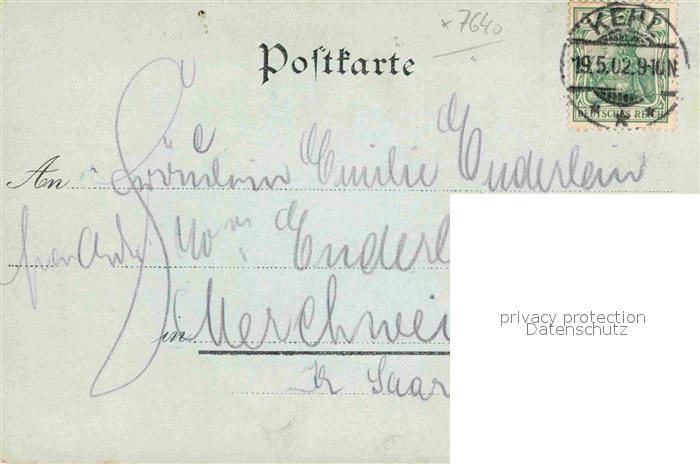 × 7640
KEHL
19.5.02.9-10N.
DEUTSCHES REICH
Postkarte
An Fräulein Emilie Enderlein
Enderl
in Merchwei
Kr Saar
privacy protection
Datenschutz